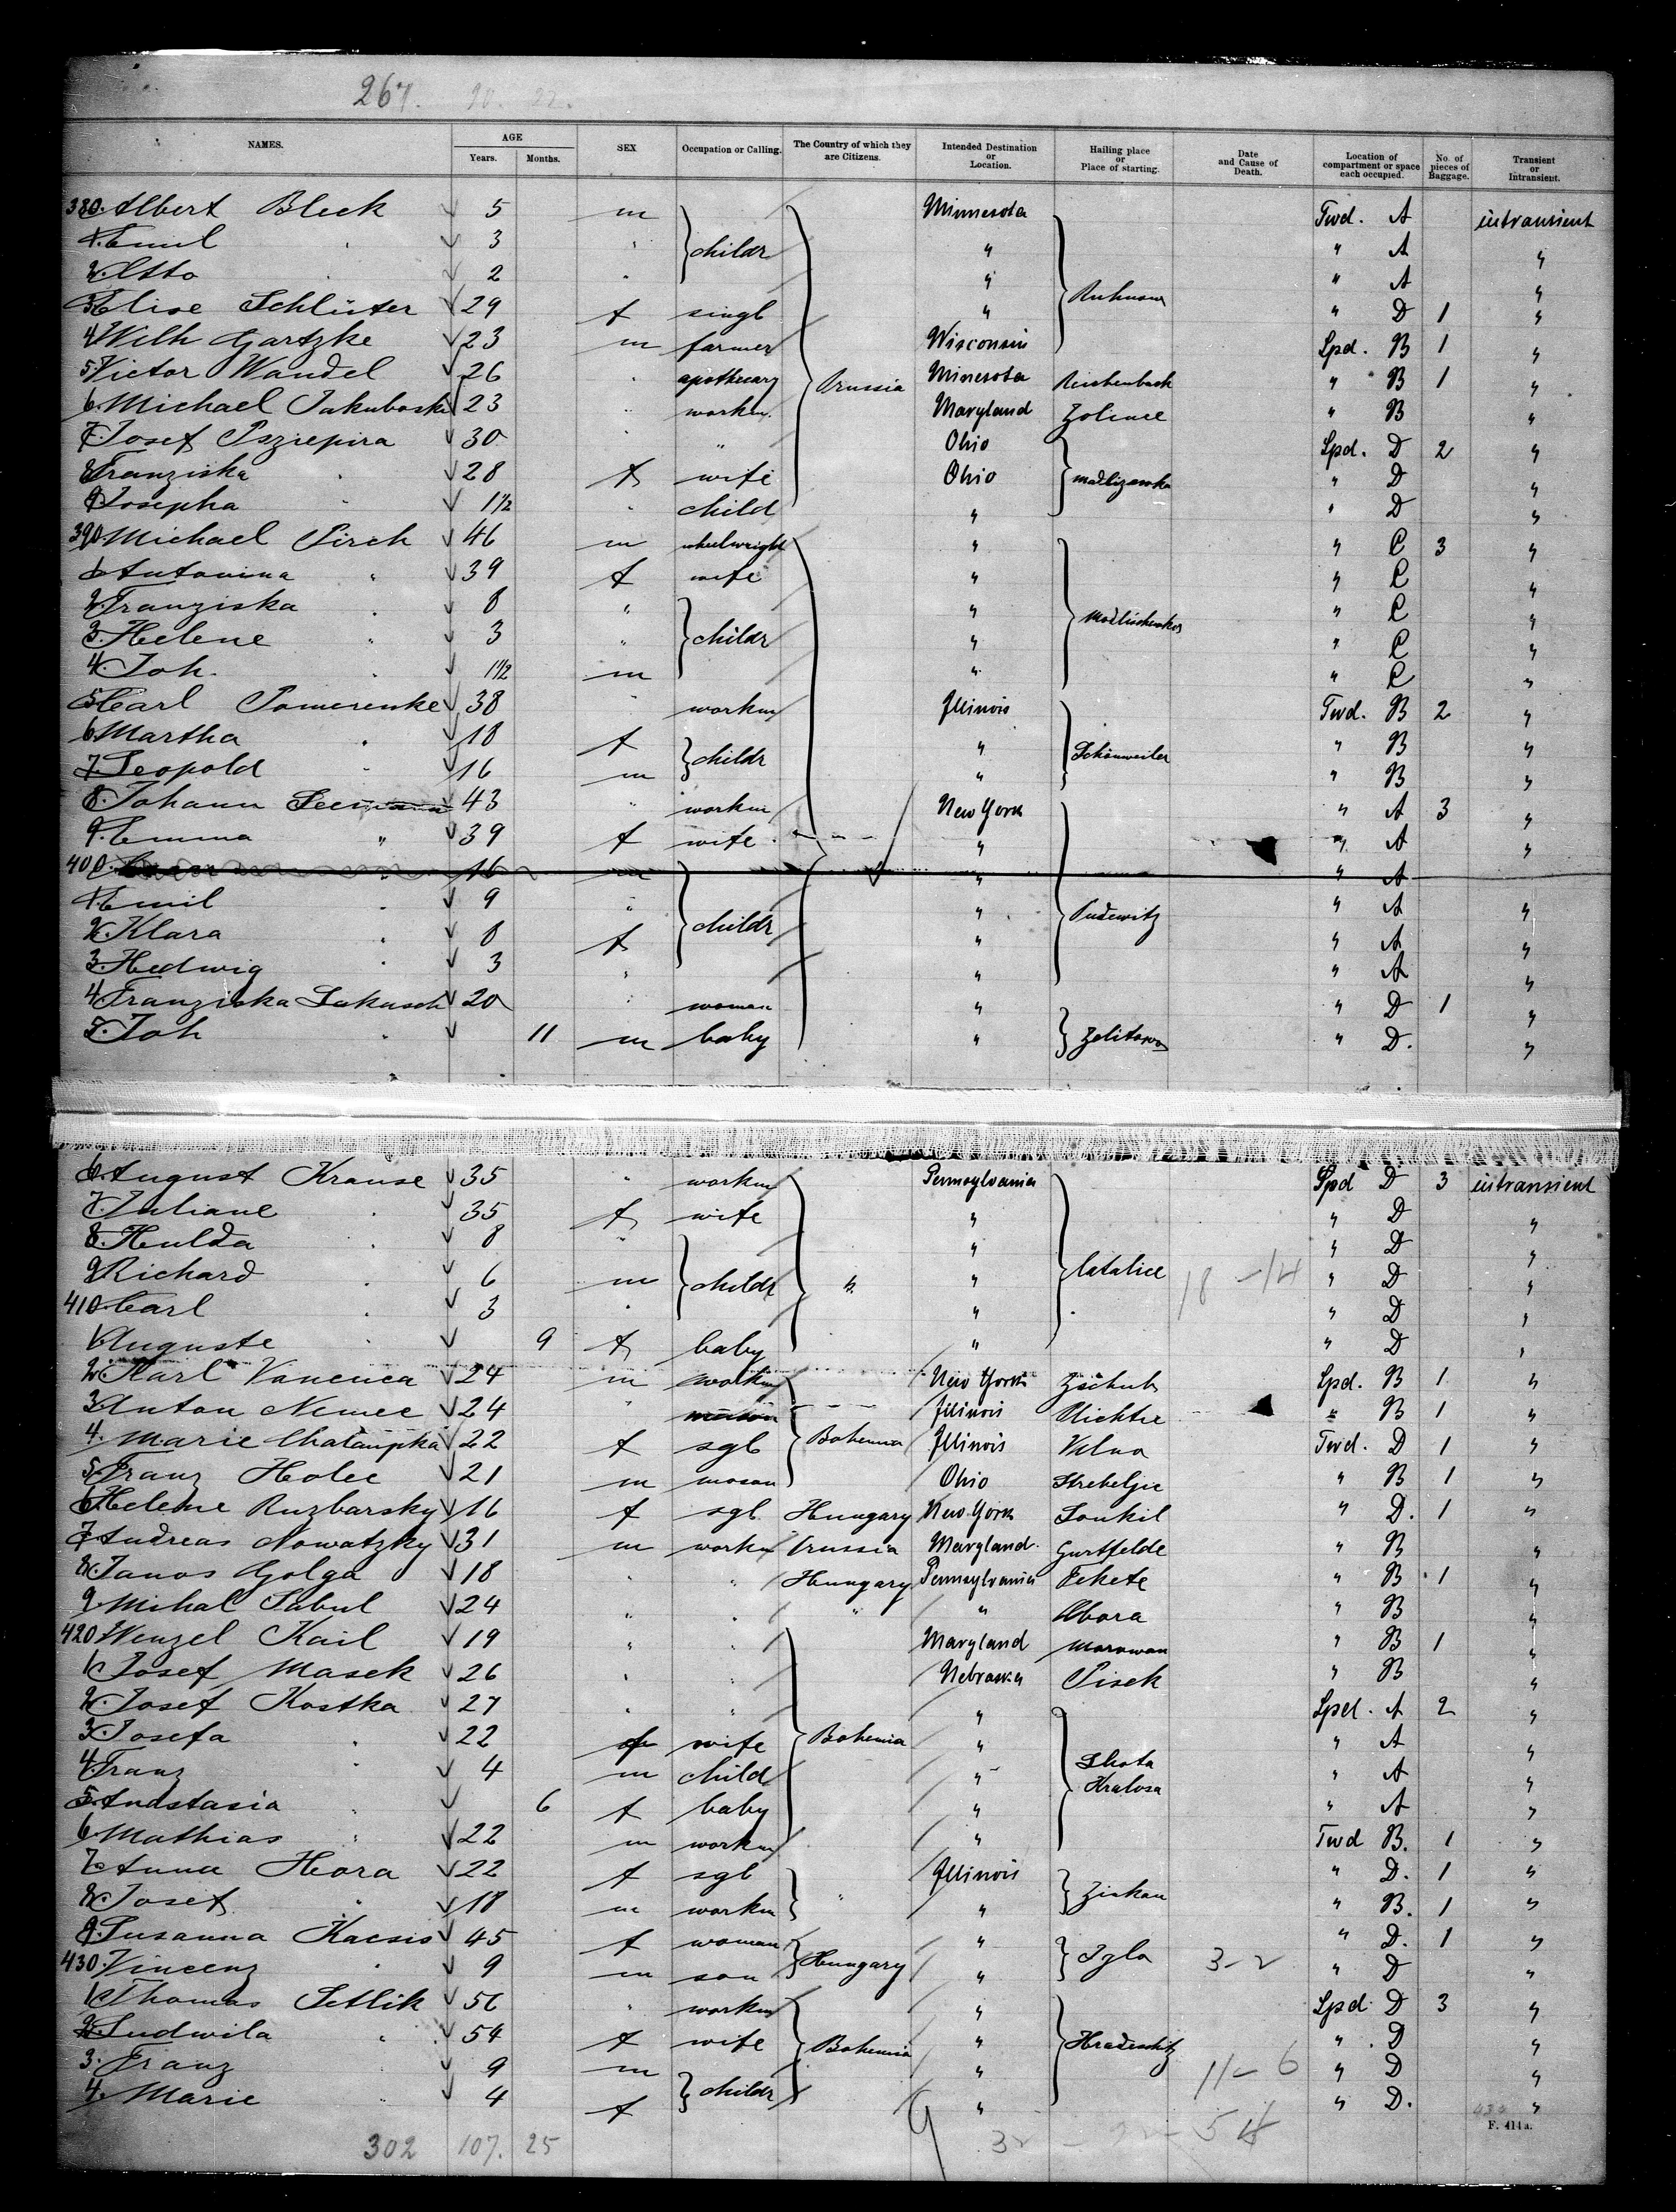 267. 20. 22.
NAMES. AGE Years. Months. SEX Occupation or Calling. The Country of which they are Citizens. Intended Destination or Location. Hailing place or Place of starting. Date and Cause of Death. Location of compartment or space each occupied. No. of pieces of Baggage. Transient or Intransient.
380. Albert Bleck 5 m Minnesota Twd. A intransient
1. Emil " 3 " } childr " " A "
2. Otto " 2 " " " A "
3. Elise Schlüter 29 f singl " " D 1 "
4. Wilh Gartzke 23 m farmer Wisconsin Spd. B 1 "
5. Victor Wandel 26 " apothecary } Prussia Minesota Reichenbach " B 1 "
6. Michael Jakuboski 23 " workm. Maryland " B "
7. Josef 30 " " Ohio Spd. D 2 "
8. Franziska " 28 f wife Ohio " D "
9. Josepha " 1 1/2 " child " " D "
390. Michael Pirch 46 m wheelwright " " C 3 "
1. Antonina " 39 f wife " " C "
2. Franziska " 8 " " " C "
3. Helene " 3 " } childr " " C "
4. Joh. " 1 1/2 m " " C "
5. Carl Pomerenke 38 " workm Illinois Twd. B 2 "
6. Martha " 18 f } childr " } Schönweiler " B "
7. Leopold " 16 m " " B "
8. Johann Seemann 43 " workm New York " A 3 "
9. Emma " 39 f wife " " A "
400. 16 m " " A
1. Emil " 9 " " } Pudewitz " A "
2. Klara " 8 f } childr " " A "
3. Hedwig " 3 " " " A "
4. Franziska Lukasch 20 " woman " " D 1 "
5. Joh " 11 m baby " } " D. "
6. August Krause 35 " workm Pennsylvania Spd D 3 intransient
7. Juliane " 35 f wife " " D "
8. Hulda " 8 " " " D "
9. Richard " 6 m } childr } " " } Latalice 18 - 14 " D "
410 Carl " 3 " " " D "
1. Auguste " 9 f baby " " D "
2. Karl Vanenca 24 m workm New York Spd. B 1 "
3. Anton Nemec 24 " mason Illinois " B 1 "
4. Marie Chalaupka 22 f sgl } Bohemia Illinois Twd. D 1 "
5. Franz Holec 21 m mason Ohio " B 1 "
6. Helene Ruzbarsky 16 f sgl. Hungary New York " D. 1 "
7. Andreas Nowatzky 31 m workm Prussia Maryland. Gurtfelde " B "
8. Janos Golga 18 " " Hungary Pennsylvania Fekete " B 1 "
9. Mihal Sabul 24 " " " " Abara " B "
420 Wenzel Kail 19 " " Maryland Morowan " B 1 "
1. Josef Masek 26 " " Nebraska Pisek " B "
2. Josef Kostka 27 " " " Spd. A 2 "
3. Josefa " 22 f wife } Bohemia " " A "
4. Franz " 4 m child " } Lhota Kralova " A "
5. Anastasia " 6 f baby " " A "
6. Mathias " 22 m workm " Twd B. 1 "
7. Anna Hora 22 f sgl Illinois " D. 1 "
8. Josef " 18 m workm } " " } Ziskau " B. 1 "
9. Susanna Kacsis 45 f woman " " D. 1 "
430 Vincenz " 9 m son } Hungary " } Iglo 3-2 " D "
1. Thomas Setlik 56 " workm " Spd. D 3 "
2. Ludwila " 54 f wife } Bohemia " } Hradeschitz " D "
3. Franz " 9 m " 11-6 " D "
4. Marie " 4 f } childr " " D. "
F. 414a.
302 107. 25 9 32 - 22 - 54